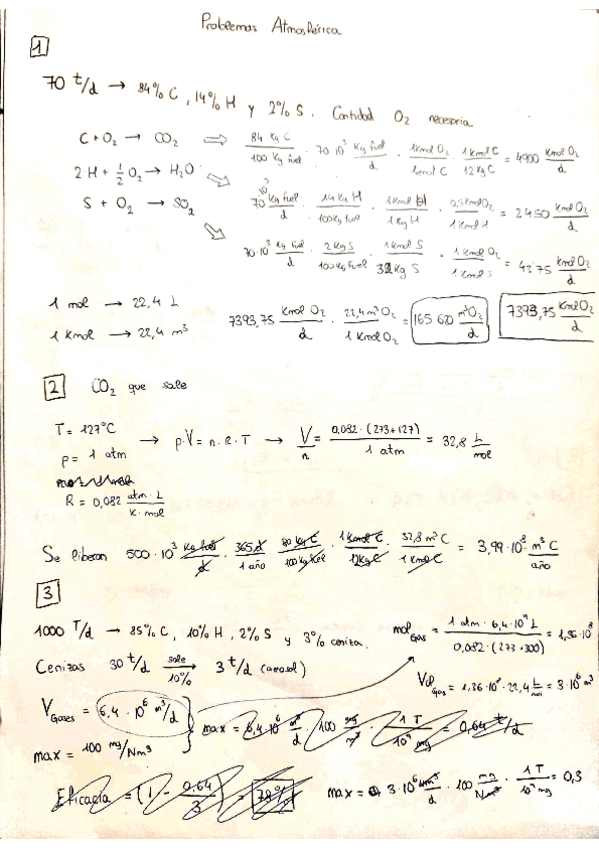 Problemas Atmosférica
1
70 t/d → 84% C, 14% H y 2% S. Cantidad O₂ necesaria
C + O₂ → CO₂ ⇒ 84 Kg C / 100 Kg fuel · 70·10³ Kg fuel / d · 1 Kmol O₂ / 1 Kmol C · 1 Kmol C / 12 Kg C = 4900 Kmol O₂ / d
2·H + 1/2 O₂ → H₂O ⇒ 70·10³ Kg fuel / d · 14 Kg H / 100 Kg fuel · 1 Kmol H / 1 Kg H · 0,5 Kmol O₂ / 1 Kmol H = 2450 Kmol O₂ / d
S + O₂ → SO₂ ⇒ 70·10³ Kg fuel / d · 2 Kg S / 100 Kg fuel · 1 Kmol S / 32 Kg S · 1 Kmol O₂ / 1 Kmol S = 43,75 Kmol O₂ / d
1 mol → 22,4 L
1 Kmol → 22,4 m³
7393,75 Kmol O₂ / d · 22,4 m³ O₂ / 1 Kmol O₂ = 165 620 m³ O₂ / d
7393,75 Kmol O₂ / d
2 CO₂ que sale
T = 127°C
p = 1 atm
R = 0,082 atm · L / K · mol
→ p·V = n·R·T → V/n = 0,082 · (273+127) / 1 atm = 32,8 L/mol
Se liberan 500·10³ Kg fuel / d · 365 d / 1 año · 80 Kg C / 100 Kg fuel · 1 Kmol C / 12 Kg C · 32,8 m³ C / 1 Kmol C = 3,99·10⁸ m³ C / año
3
1000 T/d → 85% C, 10% H, 2% S y 3% ceniza.
Cenizas 30 t/d sale 10% → 3 t/d (aerosol)
V gases = 6,4·10⁶ m³/d
max = 100 mg/Nm³
mol gas = 1 atm · 6,4·10⁹ L / 0,082 · (273+300) = 1,36·10⁸
Vol gas = 1,36·10⁸ · 22,4 L/mol = 3·10⁶ m³
max = 6,4·10⁶ m³ / d · 100 mg / m³ · 1 T / 10⁹ mg = 0,64 t/d
Eficacia = (1 - 0,64 / 3) = 78%
max = 3·10⁶ Nm³ / d · 100 mg / Nm³ · 1 T / 10⁹ mg = 0,3